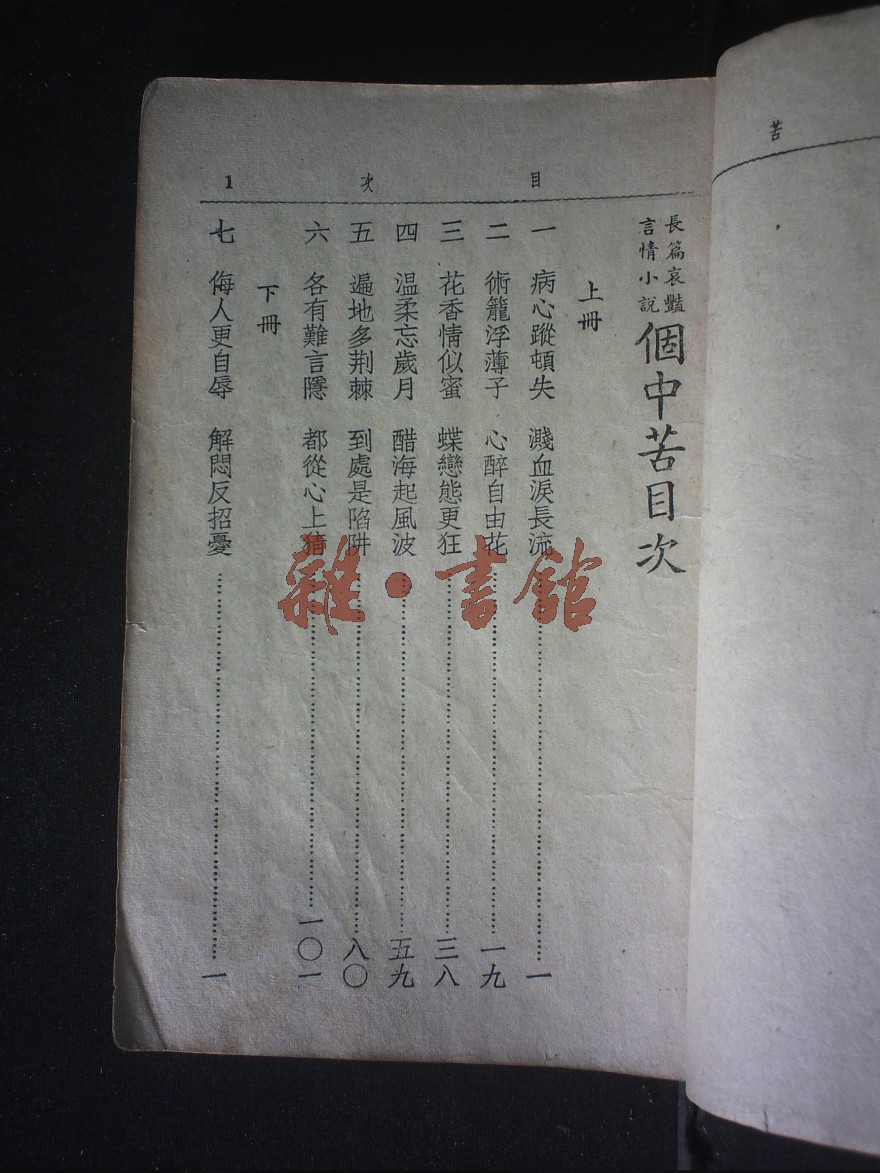 苦
目次 1
長篇哀豔
言情小說
個中苦目次
上冊
一 病心蹤頓失 濺血淚長流……一
二 術籠浮薄子 心醉自由花……一九
三 花香情似蜜 蝶戀態更狂……三八
四 温柔忘歲月 醋海起風波……五九
五 遍地多荆棘 到處是陷阱……八〇
六 各有難言隱 都從心上猜……一〇一
下冊
七 侮人更自辱 解悶反招憂……一
雜·書館